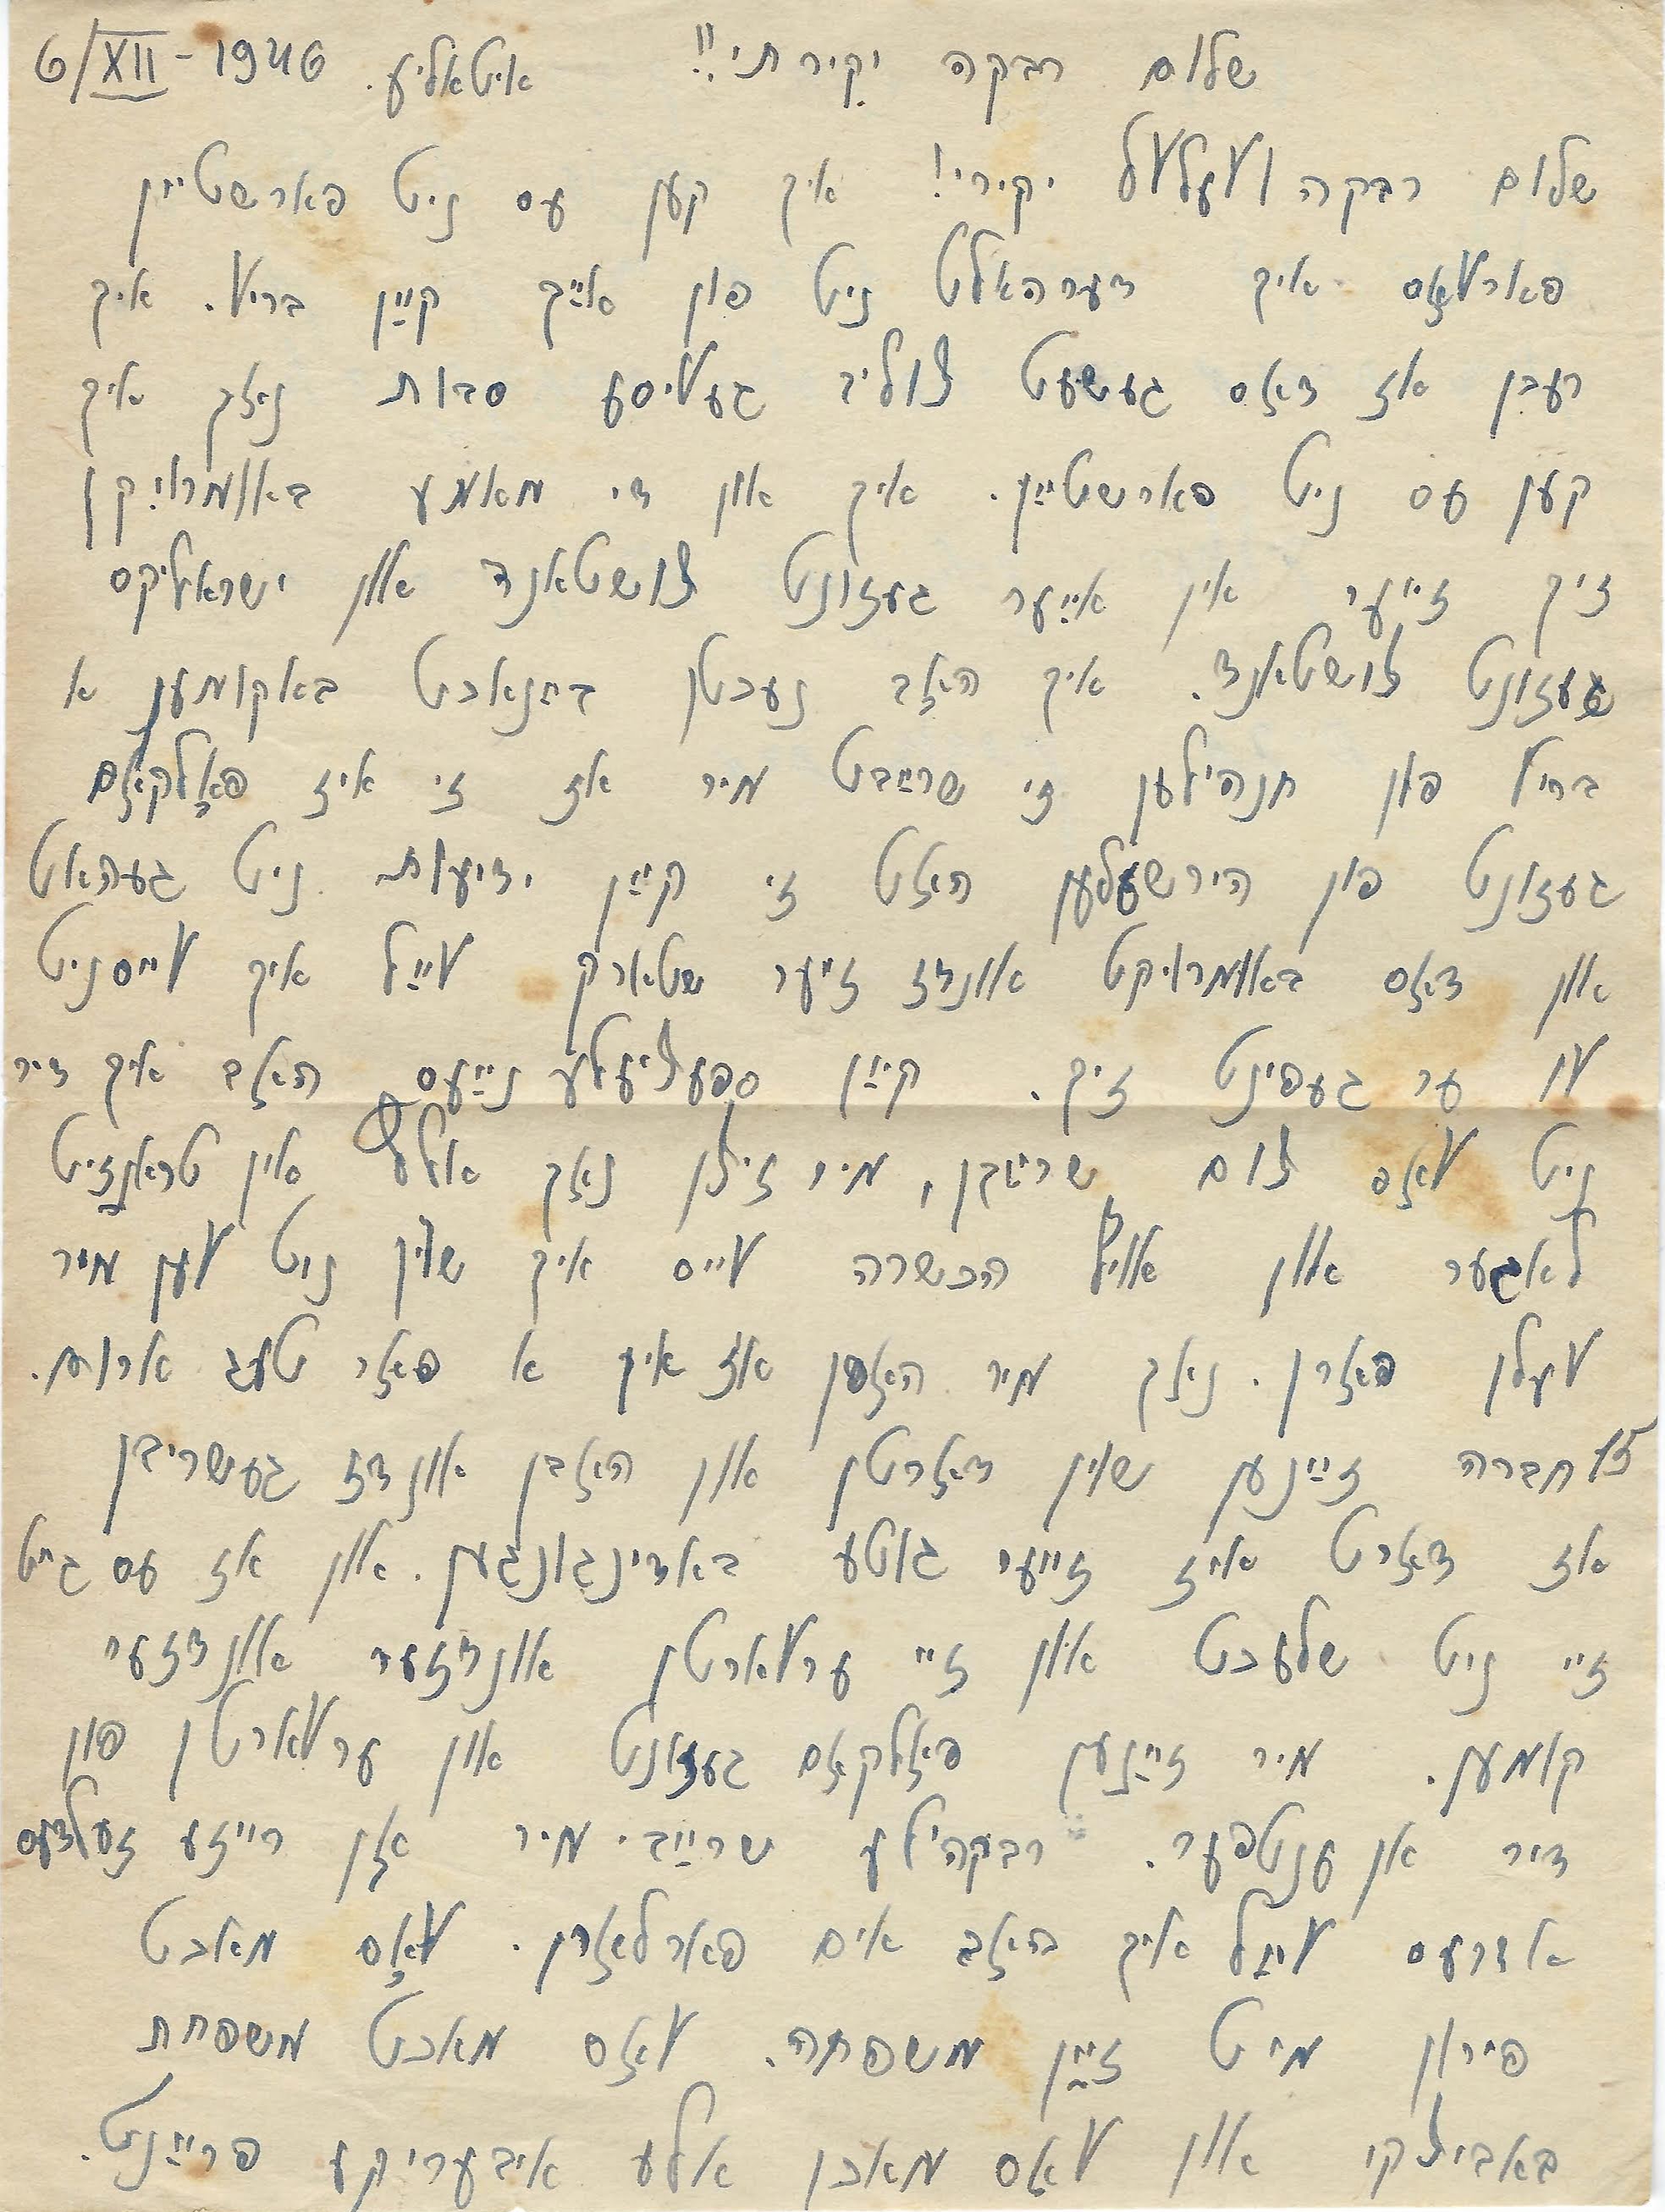 שלום רבקה יקירתי!! איטאליע. 6/XII-1946
שלום רבקה וועלוול יקירי! איך קען עס ניט פארשטיין
פארוואס איך דערהאלט ניט פון אייך קיין בריוו. איך
רעכן אז דאס געשעט צוליב געוויסע סבות נאך איך
קען עס ניט פארשטיין. איך און די מאמע באאומרויקן
זיך זייער אין אייער געזונט צושטאנד און ישראליקס
געזונט צושטאנד. איך האב נעכטן בײנאכט באקומען א
בריוו פון חנהילען זי שרײבט מיר אז זי איז פאלקאם
געזונט פון הירשעלען האט זי קיין ידיעות ניט געהאט
און דאס באאומרויקט אונדז זייער שטארק ווייל איך ווייסניט
וואו ער געפינט זיך. קיין ספעציעלע נייעס האב איך דיר
ניט וואס צום שרײבן, מיר זיצן נאך אלץ אין טראנזיט
לאגער און אויף הכשרה ווייס איך שוין ניט ווען מיר
וועלן פארן. נאך מיר האפן אז אין א פאר טעג ארום.
15 חברה זיינען שוין דארטן און האבן אונדז געשריבן
אז דארט איז זייער גוטע באדינגונגען. און אז עס גייט
זיי ניט שלעכט און זיי ערווארטן אונדזער אונדזער
קומען. מיר זיינען פאלקאם געזונט און ערווארטן פון
דיר אן ענטפער. רבקהילע שרייב מיר אן רייזע זעלדעס
אדרעס ווייל איך האב אים פארלארן. וואס מאכט
פירון מיט זיין משפחה. וואס מאכט משפחת
באביצקי און וואס מאכן אלע איבעריקע פריינט.